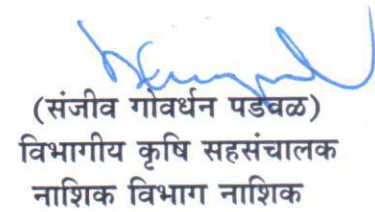 (संजीव गोवर्धन पडवळ)
विभागीय कृषि सहसंचालक
नाशिक विभाग नाशिक